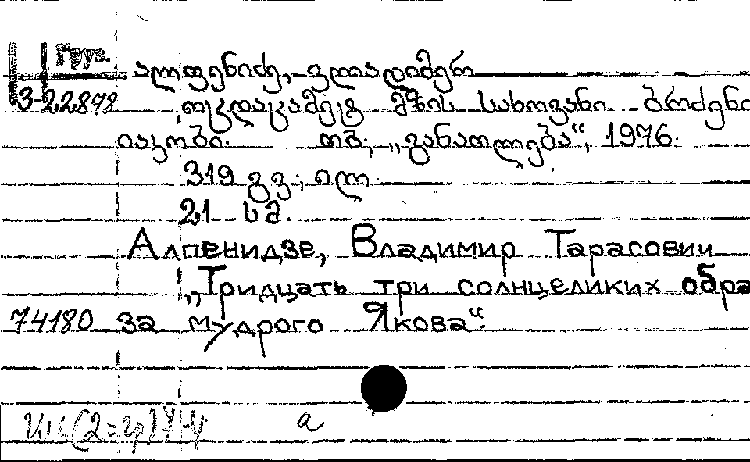 Груз.
ალფენიძე, ვლადიმერ
3-22878 ოცდაცამეტ მზის სახოვანი ბრძენი
იაკობი. თბ., „განათლება“, 1976.
319 გვ.; ილ.
21 სმ.
Алпенидзе, Владимир Тарасович
„Тридцать три солнцеликих обра
74180 за мудрого Якова“.
а